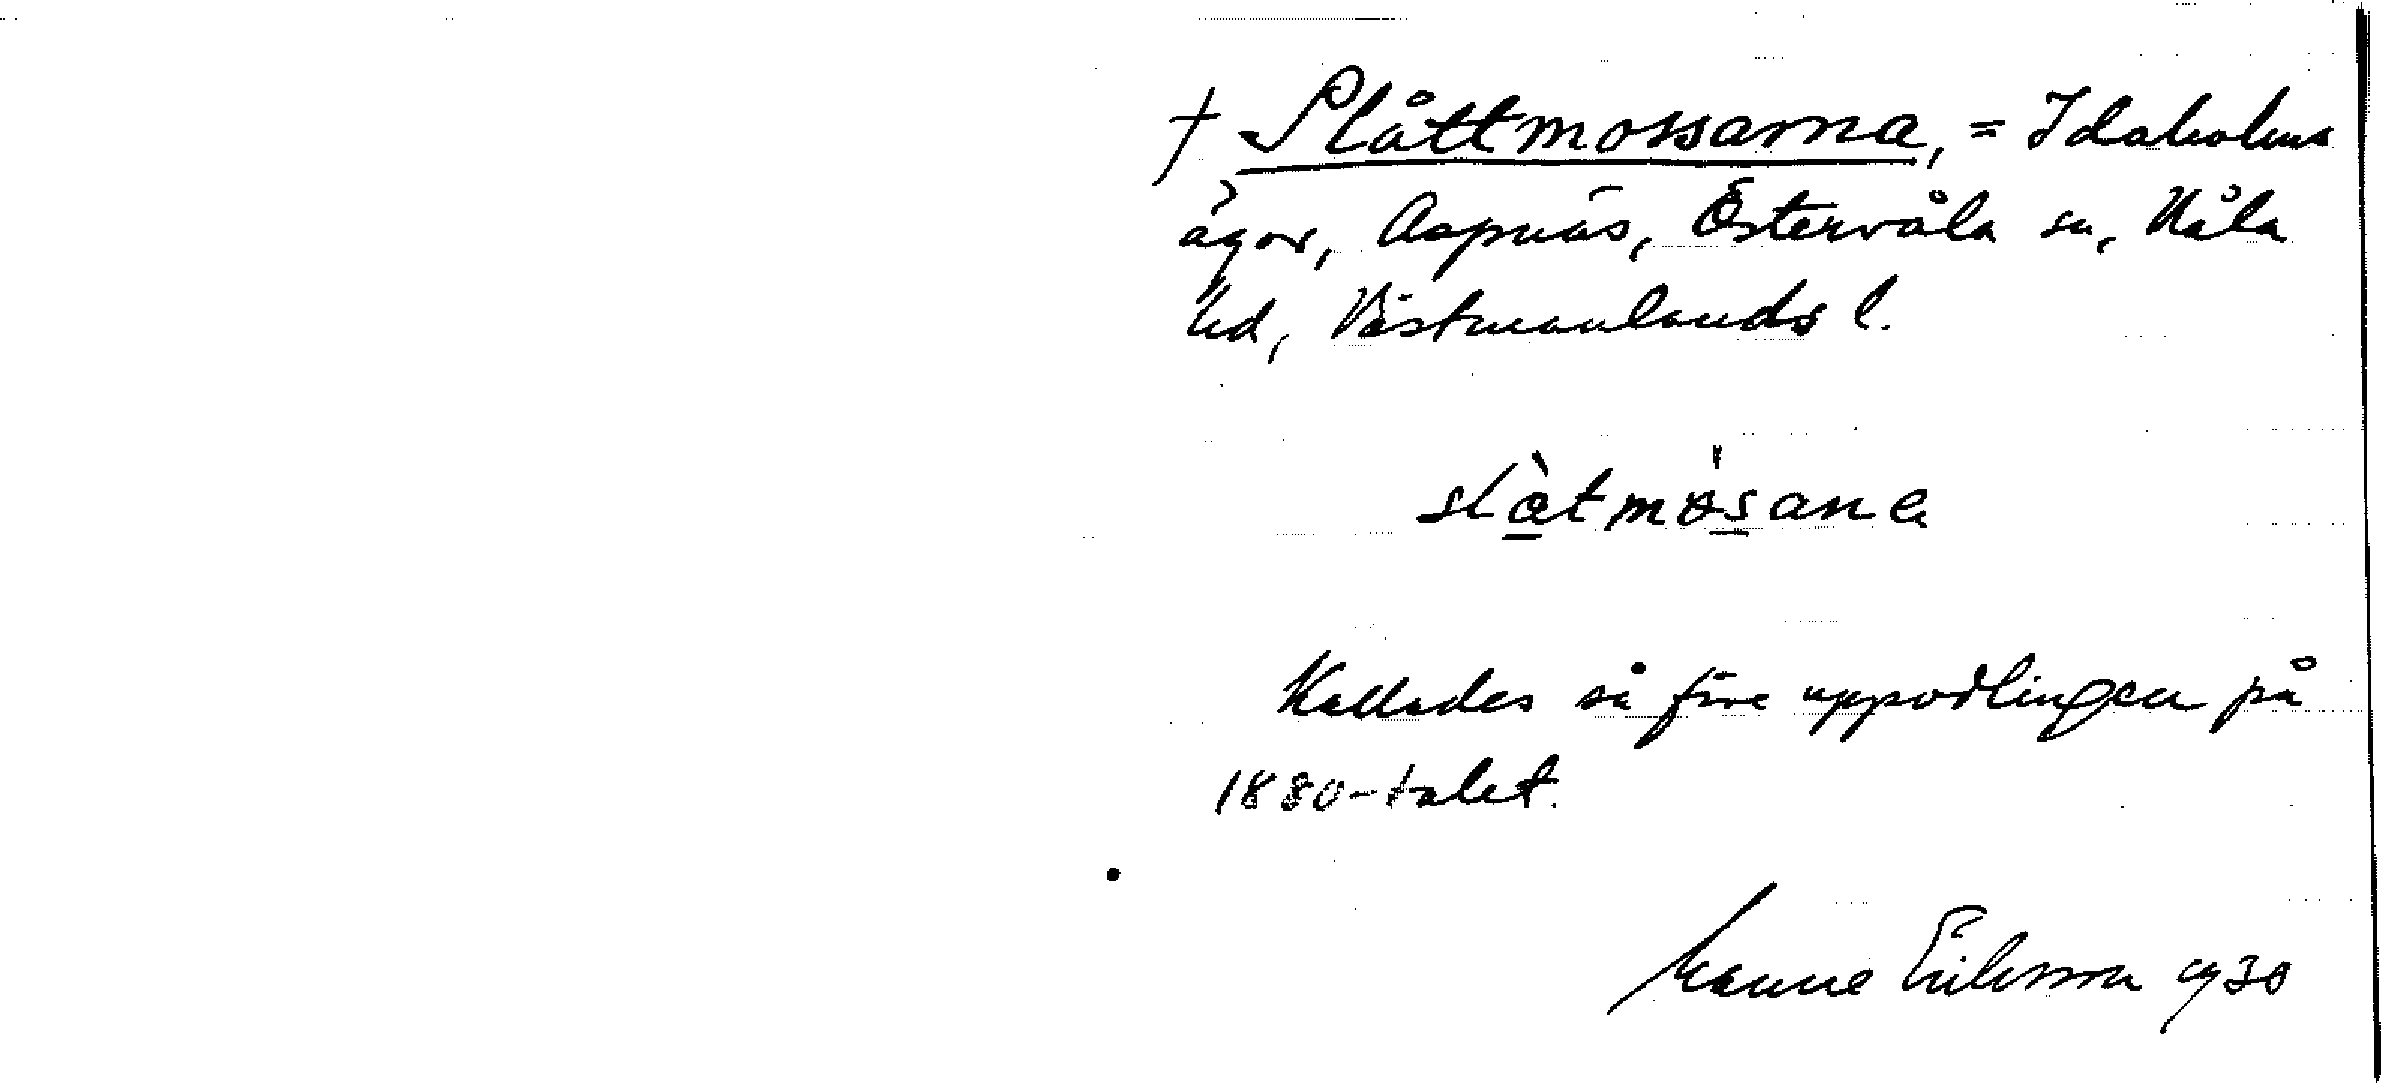 † Slåttmossarna, = Idaholms
ägor, Aspnäs, Östervåla sn, Våla
hd, Västmanlands l.
slåtmosana
Kallades så före uppodlingen på
1880-talet.
Manne Eriksson 1930